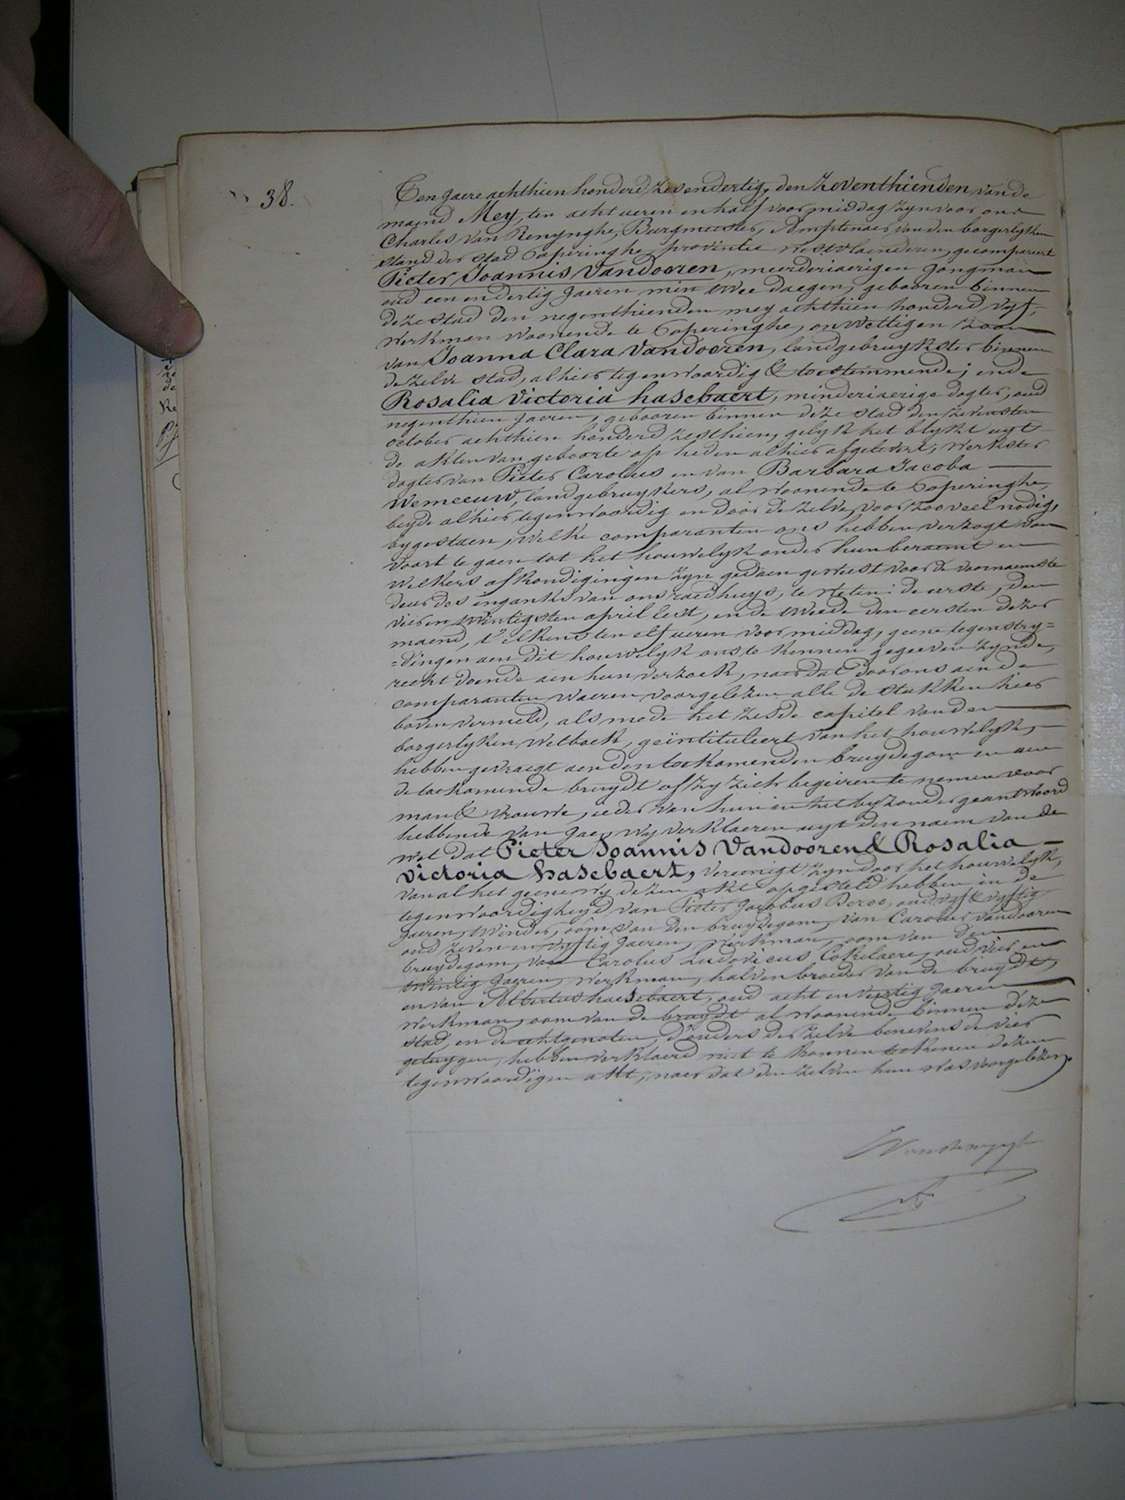 38.
Ten jaere achthien honderd zevendertig, den zeventhienden van de
maend Mey, ten acht ueren en half voor middag zyn voor ons
Charles Van Renynghe, Burgmeester, Amptenaer van den borgerlyken
stand der stad Poperinghe, provintie Westvlaenderen, gecompareert
Pieter Joannis Vandooren, meerderjaerigen jongman
oud een en dertig jaeren min twee daegen, gebooren binnen
deze stad den negenthienden mey achthien honderd vyf,
werkman woonende te Poperinghe, onwettigen zoon
van Joanna Clara Vandooren, landgebruykster binnen
dezelve stad, alhier tegenwoordig & toestemmende; ende
Rosalia Victoria hasebaert, minderjaerige dogter, oud
negenthien jaeren, gebooren binnen deze stad den zevensten
october achthien honderd zesthien, gelyk het blykt uyt
de akten van geboorte op heden alhier afgelevert, werkster
dogter van Pieter Carolus en van Barbara Jacoba
Wemeeuw, landgebruykers, al woonende te Poperinghe,
beyde alhier tegenwoordig en door de zelve, voor zoo veel nodig,
bygestaen, welke comparanten ons hebben verzogt van
voort te gaen tot het houwelyk onder hun beraemt en
welkers afkondigingen zyn gedaen geweest voor de voornaemste
deur des inganks van ons raedhuys, te weten: de eerste, den
vieren twintigsten april lest, en de tweede den eersten dezer
maend, t'elkens ten elf ueren voor middag, geene tegenstry=
=dingen aen dit houwelyk ons te kennen gegeeven zynde,
recht doende aen hun verzoek, naer dat door ons aen de
comparanten waeren voorgelezen alle de stukken hier
boven vermeld, als mede het zesde capitel van den
borgerlyken wetboek, geïntituleert van het houwelyk,
hebben gevraegt aen den toekomenden bruydegom en aen
de toekomende bruydt of zy zich begeiren te nemen voor
man & vrouwe, ieder van hun in het byzonder geantwoord
hebbende van Jae, wy verklaeren uyt den naem van de
wet dat Pieter Joannis Vandooren & Rosalia
Victoria hasebaert, vereenigt zyn door het houwelyk,
van al het geene wy dezen akt opgesteld hebben in de
tegenwoordigheyd van Pieter Jacobus oud vyf & vyftig
jaeren, oom van den bruydegom, van Carolus Vandooren
oud zeven en vyftig jaeren, werkman, oom van den
bruydegom, van Carolus Ludovicus oud vier en
twintig jaeren, werkman, halven broeder van de bruydt,
en van Albertus hasebaert, oud acht en jaeren
werkman, oom van de bruydt al woonende binnen deze
stad, en de echtgenoten, d'ouders der zelve benevens de vier
getuygen, hebben verklaerd niet te konnen teekenen dezen
tegenwoordigen akt, naer dat den zelven hun was voorgelezen.